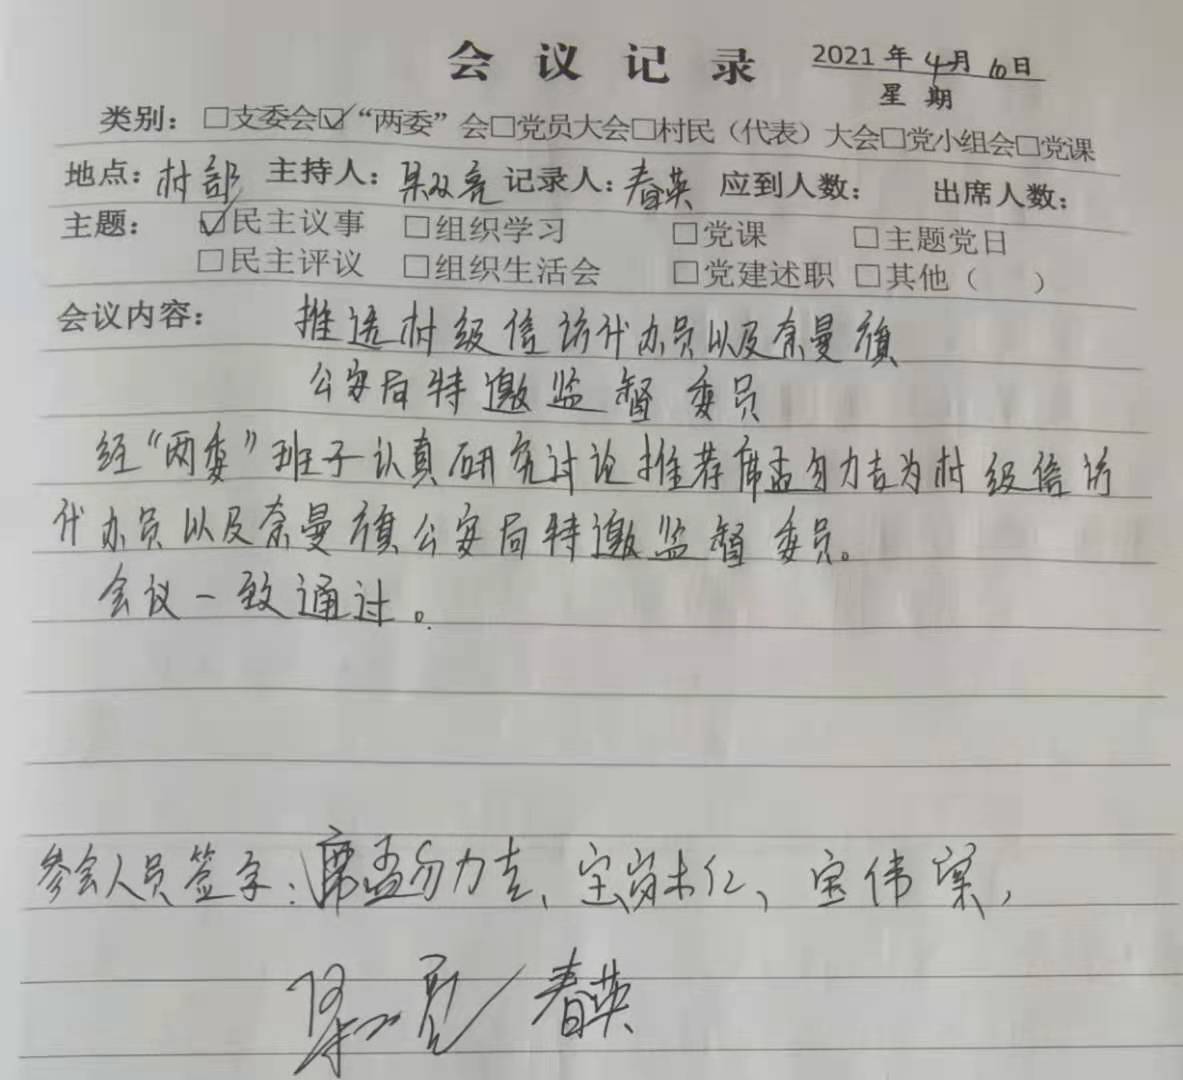 会议记录 2021年4月10日
星期
类别：□支委会☑“两委”会□党员大会□村民（代表）大会□党小组会□党课
地点：村部 主持人：梁双亮 记录人：春英 应到人数： 出席人数：
主题： ☑民主议事 □组织学习 □党课 □主题党日
□民主评议 □组织生活会 □党建述职 □其他（ ）
会议内容： 推选村级信访代办员以及奈曼旗
公安局特邀监督委员
经“两委”班子认真研究讨论推荐席孟勿力吉为村级信访
代办员以及奈曼旗公安局特邀监督委员。
会议一致通过。
参会人员签字：席孟勿力吉、宝岗木仁、宝伟
春英